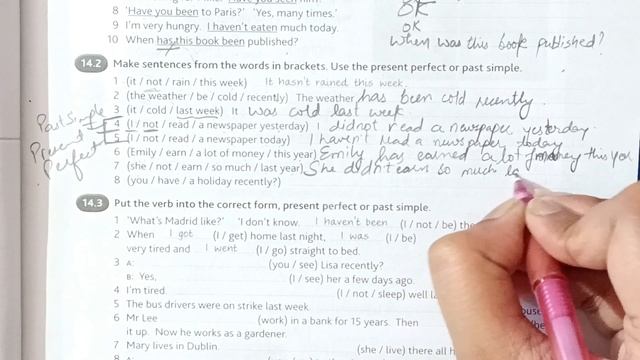 8 'Have you been to Paris?' 'Yes, many times.'
OK
9 I'm very hungry. I haven't eaten much today.
OK
10 When has this book been published?
When was this book published?
14.2 Make sentences from the words in brackets. Use the present perfect or past simple.
1 (it / not / rain / this week) It hasn't rained this week.
2 (the weather / be / cold / recently) The weather has been cold recently.
3 (it / cold / last week) It was cold last week
Past Simple
4 (I / not / read / a newspaper yesterday) I didnot read a newspaper yesterday.
Present Perfect
5 (I / not / read / a newspaper today) I haven't read a newspaper today
6 (Emily / earn / a lot of money / this year) Emily has earned a lot money this
7 (she / not / earn / so much / last year) She didn't earn so much
8 (you / have / a holiday recently?)
14.3 Put the verb into the correct form, present perfect or past simple.
1 'What's Madrid like?' 'I don't know. I haven't been (I / not / be)
2 When I got (I / get) home last night, I was (I / be)
very tired and I went (I / go) straight to bed.
3 A: (you / see) Lisa recently?
B: Yes, (I / see) her a few days ago.
4 I'm tired. (I / not / sleep) well
5 The bus drivers were on strike last week
6 Mr Lee (work) in a bank for 15 years. Then
it up. Now he works as a gardener.
7 Mary lives in Dublin. (she / live) there all
8 A: